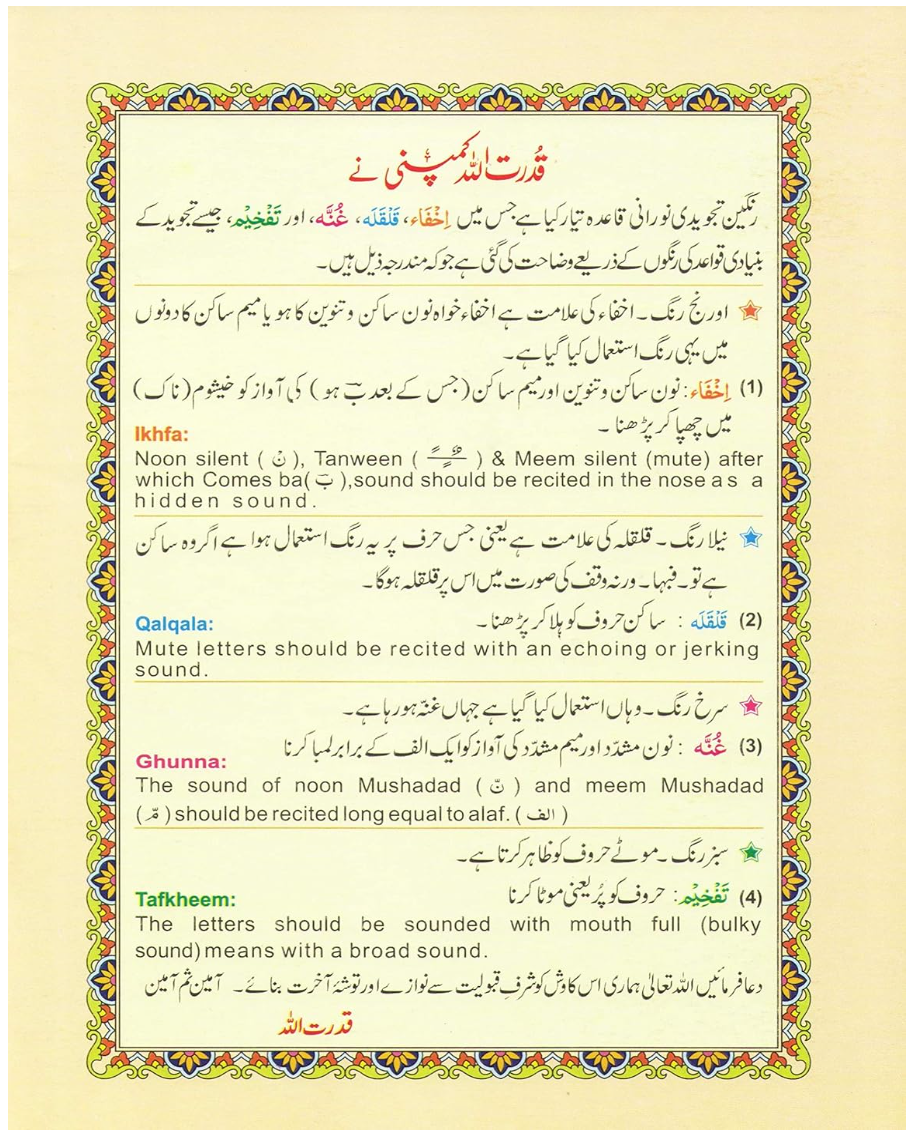 قُدرت اللہ کمپنی نے
رنگین تجویدی نورانی قاعدہ تیار کیا ہے جس میں اِخْفَاء، قَلْقَلَه، غُنَّه، اور تَفْخِيْم، جیسے تجوید کے
بنیادی قواعد کی رنگوں کے ذریعے وضاحت کی گئی ہے جو کہ مندرجہ ذیل ہیں۔
اورنج رنگ۔ اخفاء کی علامت ہے اخفاء خواہ نون ساکن و تنوین کا ہو یا میم ساکن کا دونوں
میں یہی رنگ استعمال کیا گیا ہے۔
(1) اِخْفَاء: نون ساکن و تنوین اور میم ساکن (جس کے بعد ب ہو) کی آواز کو خیشوم (ناک)
میں چھپا کر پڑھنا۔
Ikhfa:
Noon silent ( نْ ), Tanween ( ـًـٍـٌ ) & Meem silent (mute) after
which Comes ba( ب ),sound should be recited in the nose as a
hidden sound.
نیلا رنگ۔ قلقلہ کی علامت ہے یعنی جس حرف پر یہ رنگ استعمال ہوا ہے اگر وہ ساکن
ہے تو۔ فبہا۔ ورنہ وقف کی صورت میں اس پر قلقلہ ہوگا۔
(2) قَلْقَلَه : ساکن حروف کو ہلا کر پڑھنا۔
Qalqala:
Mute letters should be recited with an echoing or jerking
sound.
سرخ رنگ۔ وہاں استعمال کیا گیا ہے جہاں غنّہ ہو رہا ہے۔
(3) غُنَّه : نون مشدّد اور میم مشدّد کی آواز کو ایک الف کے برابر لمبا کرنا
Ghunna:
The sound of noon Mushadad ( نّ ) and meem Mushadad
( مّ ) should be recited long equal to alaf. ( الف )
سبز رنگ۔ موٹے حروف کو ظاہر کرتا ہے۔
(4) تَفْخِيْم: حروف کو پُر یعنی موٹا کرنا
Tafkheem:
The letters should be sounded with mouth full (bulky
sound) means with a broad sound.
دعا فرمائیں اللہ تعالیٰ ہماری اس کاوش کو شرفِ قبولیت سے نوازے اور توشۂ آخرت بنائے۔ آمین ثم آمین
قدرت اللہ